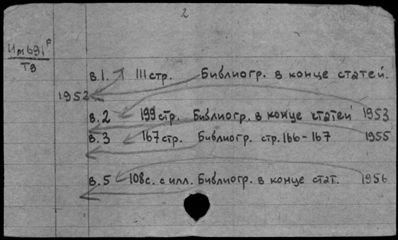 2
Им691р
Т8
в.1. 111стр. Библиогр. в конце статей.
1952
в.2 199стр. Библиогр. в конце статей 1953
в.3 167стр. Библиогр. стр.166-167 1955
в.5 108с. с илл. Библиогр. в конце стат. 1956